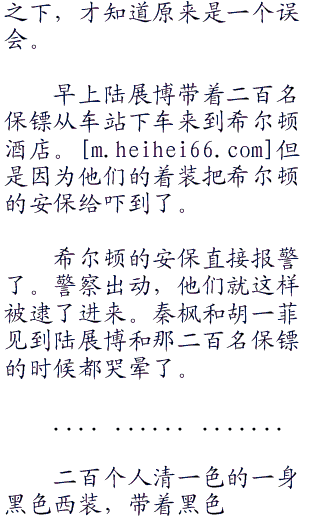 之下，才知道原来是一个误
会。
早上陆展博带着二百名
保镖从车站下车来到希尔顿
酒店。[m.heihei66.com]但
是因为他们的着装把希尔顿
的安保给吓到了。
希尔顿的安保直接报警
了。警察出动，他们就这样
被逮了进来。秦枫和胡一菲
见到陆展博和那二百名保镖
的时候都哭晕了。
.... ...... .......
二百个人清一色的一身
黑色西装，带着黑色